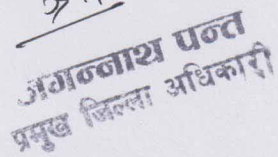 जगन्नाथ पन्त
प्रमुख जिल्ला अधिकारी